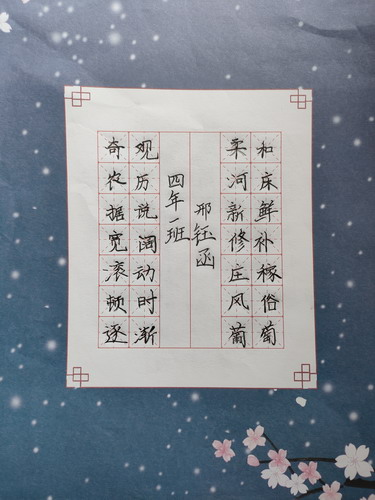 奇观
农历
据说
宽阔
滚动
顿时
逐渐
四年一班
邢钰函
柔和
河床
新鲜
修补
庄稼
风俗
葡萄